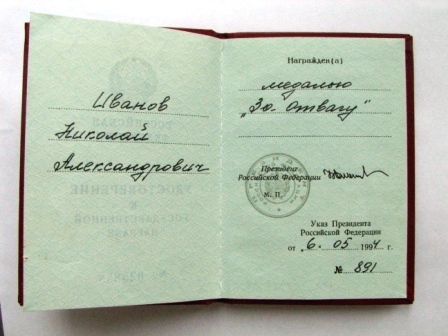 Иванов
Николай
Александрович
Награжден(а)
медалью
„За отвагу"
Президент
Российской Федерации
М. П.
Указ Президента
Российской Федерации
от „6. 05 1994 г.
№ 891